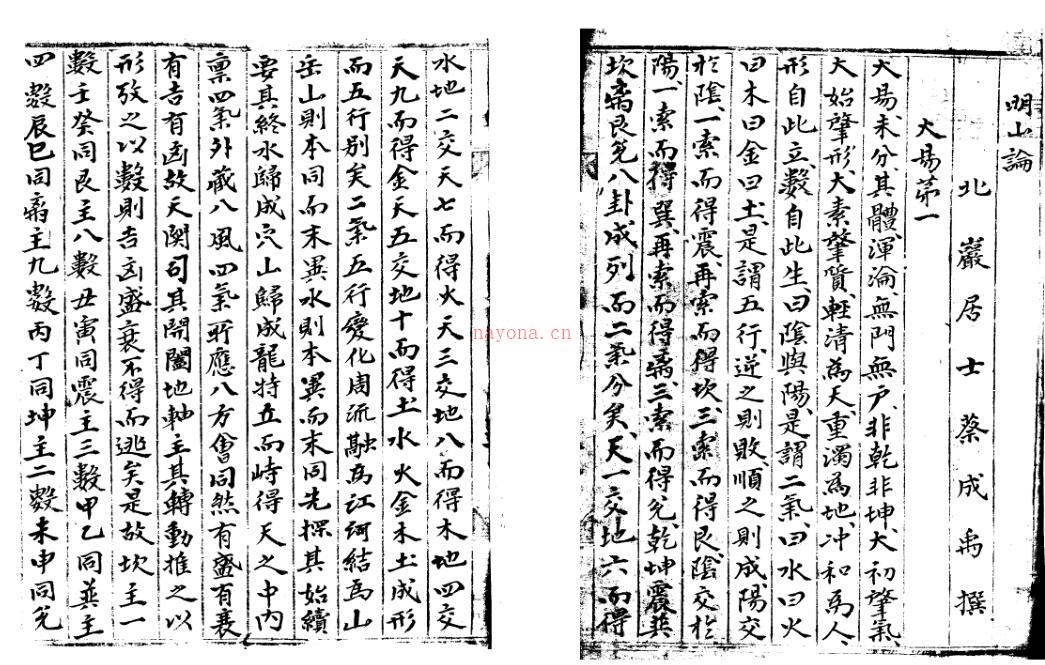 明山論
北巖居士蔡成禹撰
大昜第一
大昜未分其體渾淪無門無户非乾非坤大初肇氣
大始肇形大素肇質輕清為天重濁為地冲和為人
形自此立數自此生曰陰與陽是謂二氣曰水曰火
曰木曰金曰土是謂五行逆之則敗順之則成陽交
於陰一索而得震再索而得坎三索而得艮陰交於
陽一索而得巽再索而得离三索而得兌乾坤震巽
坎离艮兌八卦成列而二氣分矣天一交地六而得
水地二交天七而得火天三交地八而得木地四交
天九而得金天五交地十而得土水火金木土成形
而五行别矣二氣五行變化周流融為江河結為山
岳山則本同而末異水則本異而末同先探其始續
要其終水歸成穴山歸成龍特立而峙得天之中内
禀四氣外藏八風四氣所應八方會同然有盛有衰
有吉有凶故天関司其開闔地軸主其轉動推之以
形攷之以數則吉凶盛衰不得而逃矣是故坎主一
數壬癸同艮主八數丑寅同震主三數甲乙同巽主
四數辰巳同离主九數丙丁同坤主二數未申同兌
nayona.cn